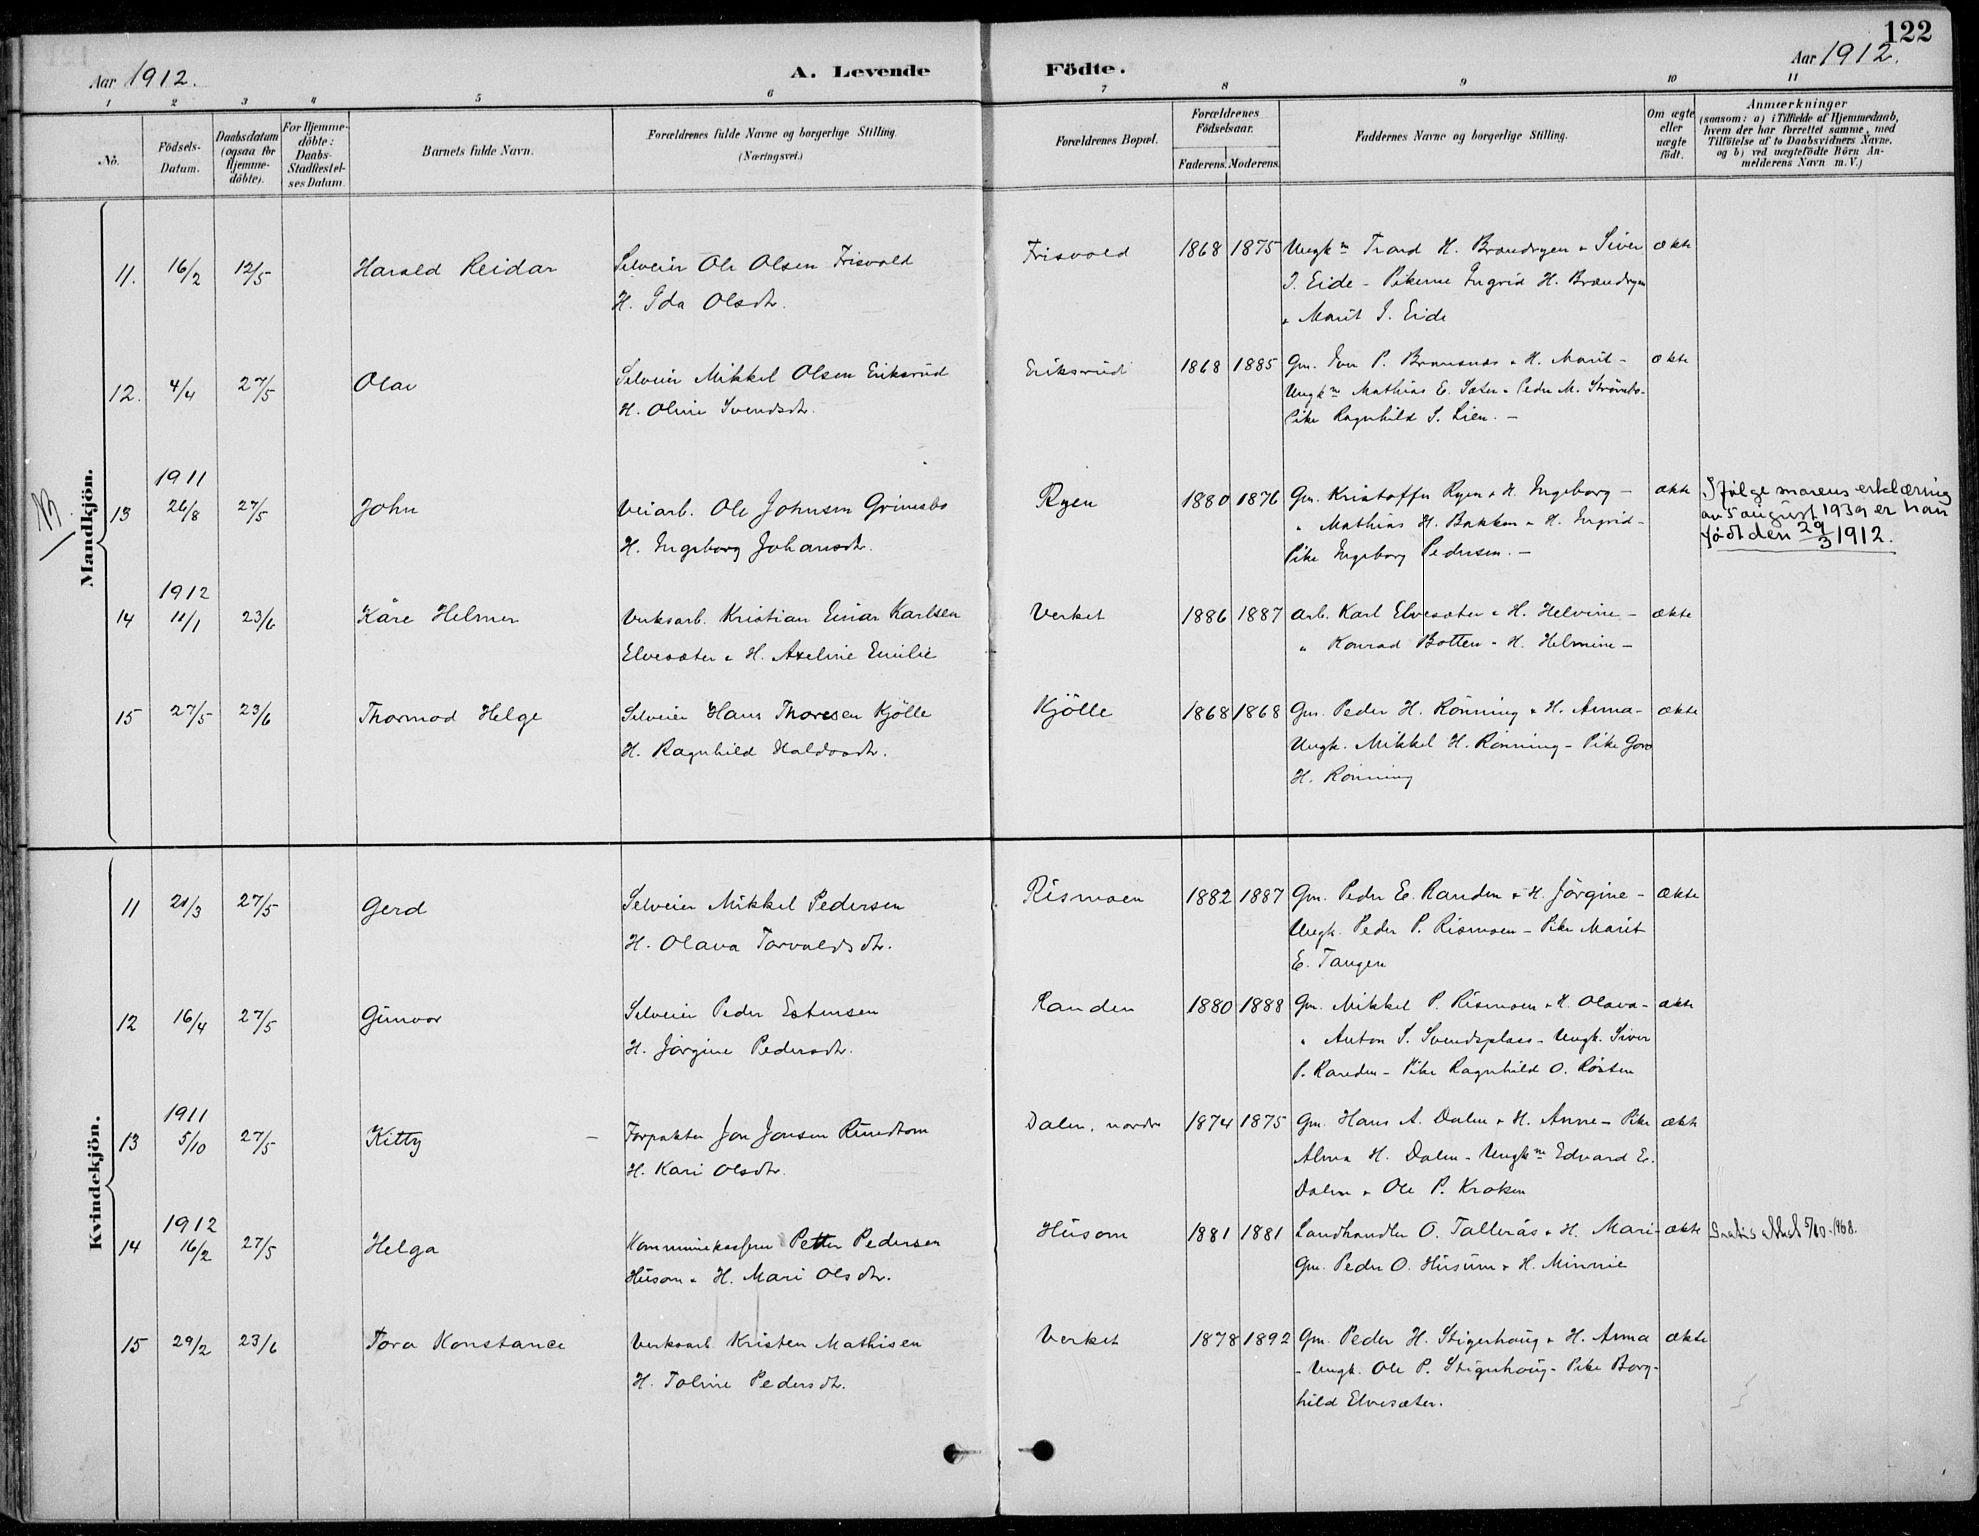 122
Aar 1912. A. Levende Födte. Aar 1912.
1 2 3 4 5 6 7 8 9 10 11
No. Födsels-Datum. Daabsdatum (ogsaa for Hjemme-döbte). For Hjemme-döbte: Daabs-Stadfestel-ses Datum. Barnets fulde Navn. Forældrenes fulde Navne og borgerlige Stilling. (Næringsvei.) Forældrenes Bopæl. Forældrenes Födselsaar. Faderens. Moderens. Faddernes Navne og borgerlige Stilling. Om ægte eller uægte födt. Anmærkninger (saasom: a) i Tilfælde af Hjemmedaab, hvem der har forrettet samme, med Tilföielse af to Daabsvidners Navne, og b) ved uægtefödte Börn An-melderens Navn m. V.)
Mandkjön.
11. 16/2 12/5 Harald Reidar Selveier Ole Olsen Frisvold Frisvold 1868 1875 Ungkm Trond H. Brændryen & Siver ækte
H. Ida Olsdtr. I. Eide - Pikerne Ingrid H. Brændryen
& Marit I. Eide
12. 4/4 27/5 Olav Selveier Mikkel Olsen Eriksrud Eriksrud 1868 1885 Gm. Iver P. & H. Marit - ækte
H. Oline Svendsdtr. Ungkm Mathias E. Sæter - Peder M.
Pike Ragnhild S. Lien. -
1911
13 26/8 27/5 John Veiarb. Ole Johnsen Grimsbo Ryen 1880 1876 Gm. Kristoffer Ryen & H. Ingeborg - ækte Ifølge morens erklæring
H. Ingeborg Johansdtr. " Mathias H. Bakken & H. Ingrid - av 5 august 1939 er han
Pike Ingeborg Pedersen. - født den 29/3 1912.
1912
14 11/1 23/6 Kåre Helmer Verksarb. Kristian Einar Karlsen Verket 1886 1887 Arb. Karl Elvesæter & H. Helvine - ækte
Elvesæter & H. Axeline Emilie " Konrad Botten - H. Helmine -
15 27/5 23/6 Thormod Helge Selveier Hans Thoresen Kjölle Kjölle 1868 1868 Gm. Peder H. Rönning & H. Anna - ækte
H. Ragnhild Haldosdtr. Ungk. Mikkel H. Rönning - Pike Goro
H. Rönning
Kvindekjön.
11 21/3 27/5 Gerd Selveier Mikkel Pedersen Rismoen 1882 1887 Gm. Peder E. Randen & H. Jörgine - ækte
H. Olava Torvaldsdtr. Ungk. Peder P. Rismoen - Pike Marit
E. Tangen
12 16/4 27/5 Gunvor Selveier Peder Estensen Randen 1880 1888 Gm. Mikkel P. Rismoen & H. Olava - ækte
H. Jörgine Pedersdtr. " Anton S. Svendsplass - Ungk. Siver
P. Randen - Pike Ragnhild O. Rösten
1911
13 5/10 27/5 Kitty Forpakter Jon Jonsen Rundtom Dalen, nordre 1874 1875 Gm. Hans A. Dalen & H. Anne - Pike ækte
H. Kari Olsdtr. Alma H. Dalen - Ungkm Edvard E.
Dalen & Ole P. Kroken
1912
14 16/2 27/5 Helga Kommunekasserer Petter Pedersen Husom 1881 1881 Landhandler O. Tallerås & H. Mari - ækte Gratis Attest 5/10-1968.
Husom & H. Mari Olsdtr. Gm. Peder O. Husum & H. Minnie
15 29/2 23/6 Tora Konstance Verksarb. Kristen Mathisen Verket 1878 1892 Gm. Peder H. Stigerhaug & H. Anna ækte
H. Toline Pedersdtr. - Ungk. Ole P. Stigerhaug - Pike Borg-
hild Elvesæter.